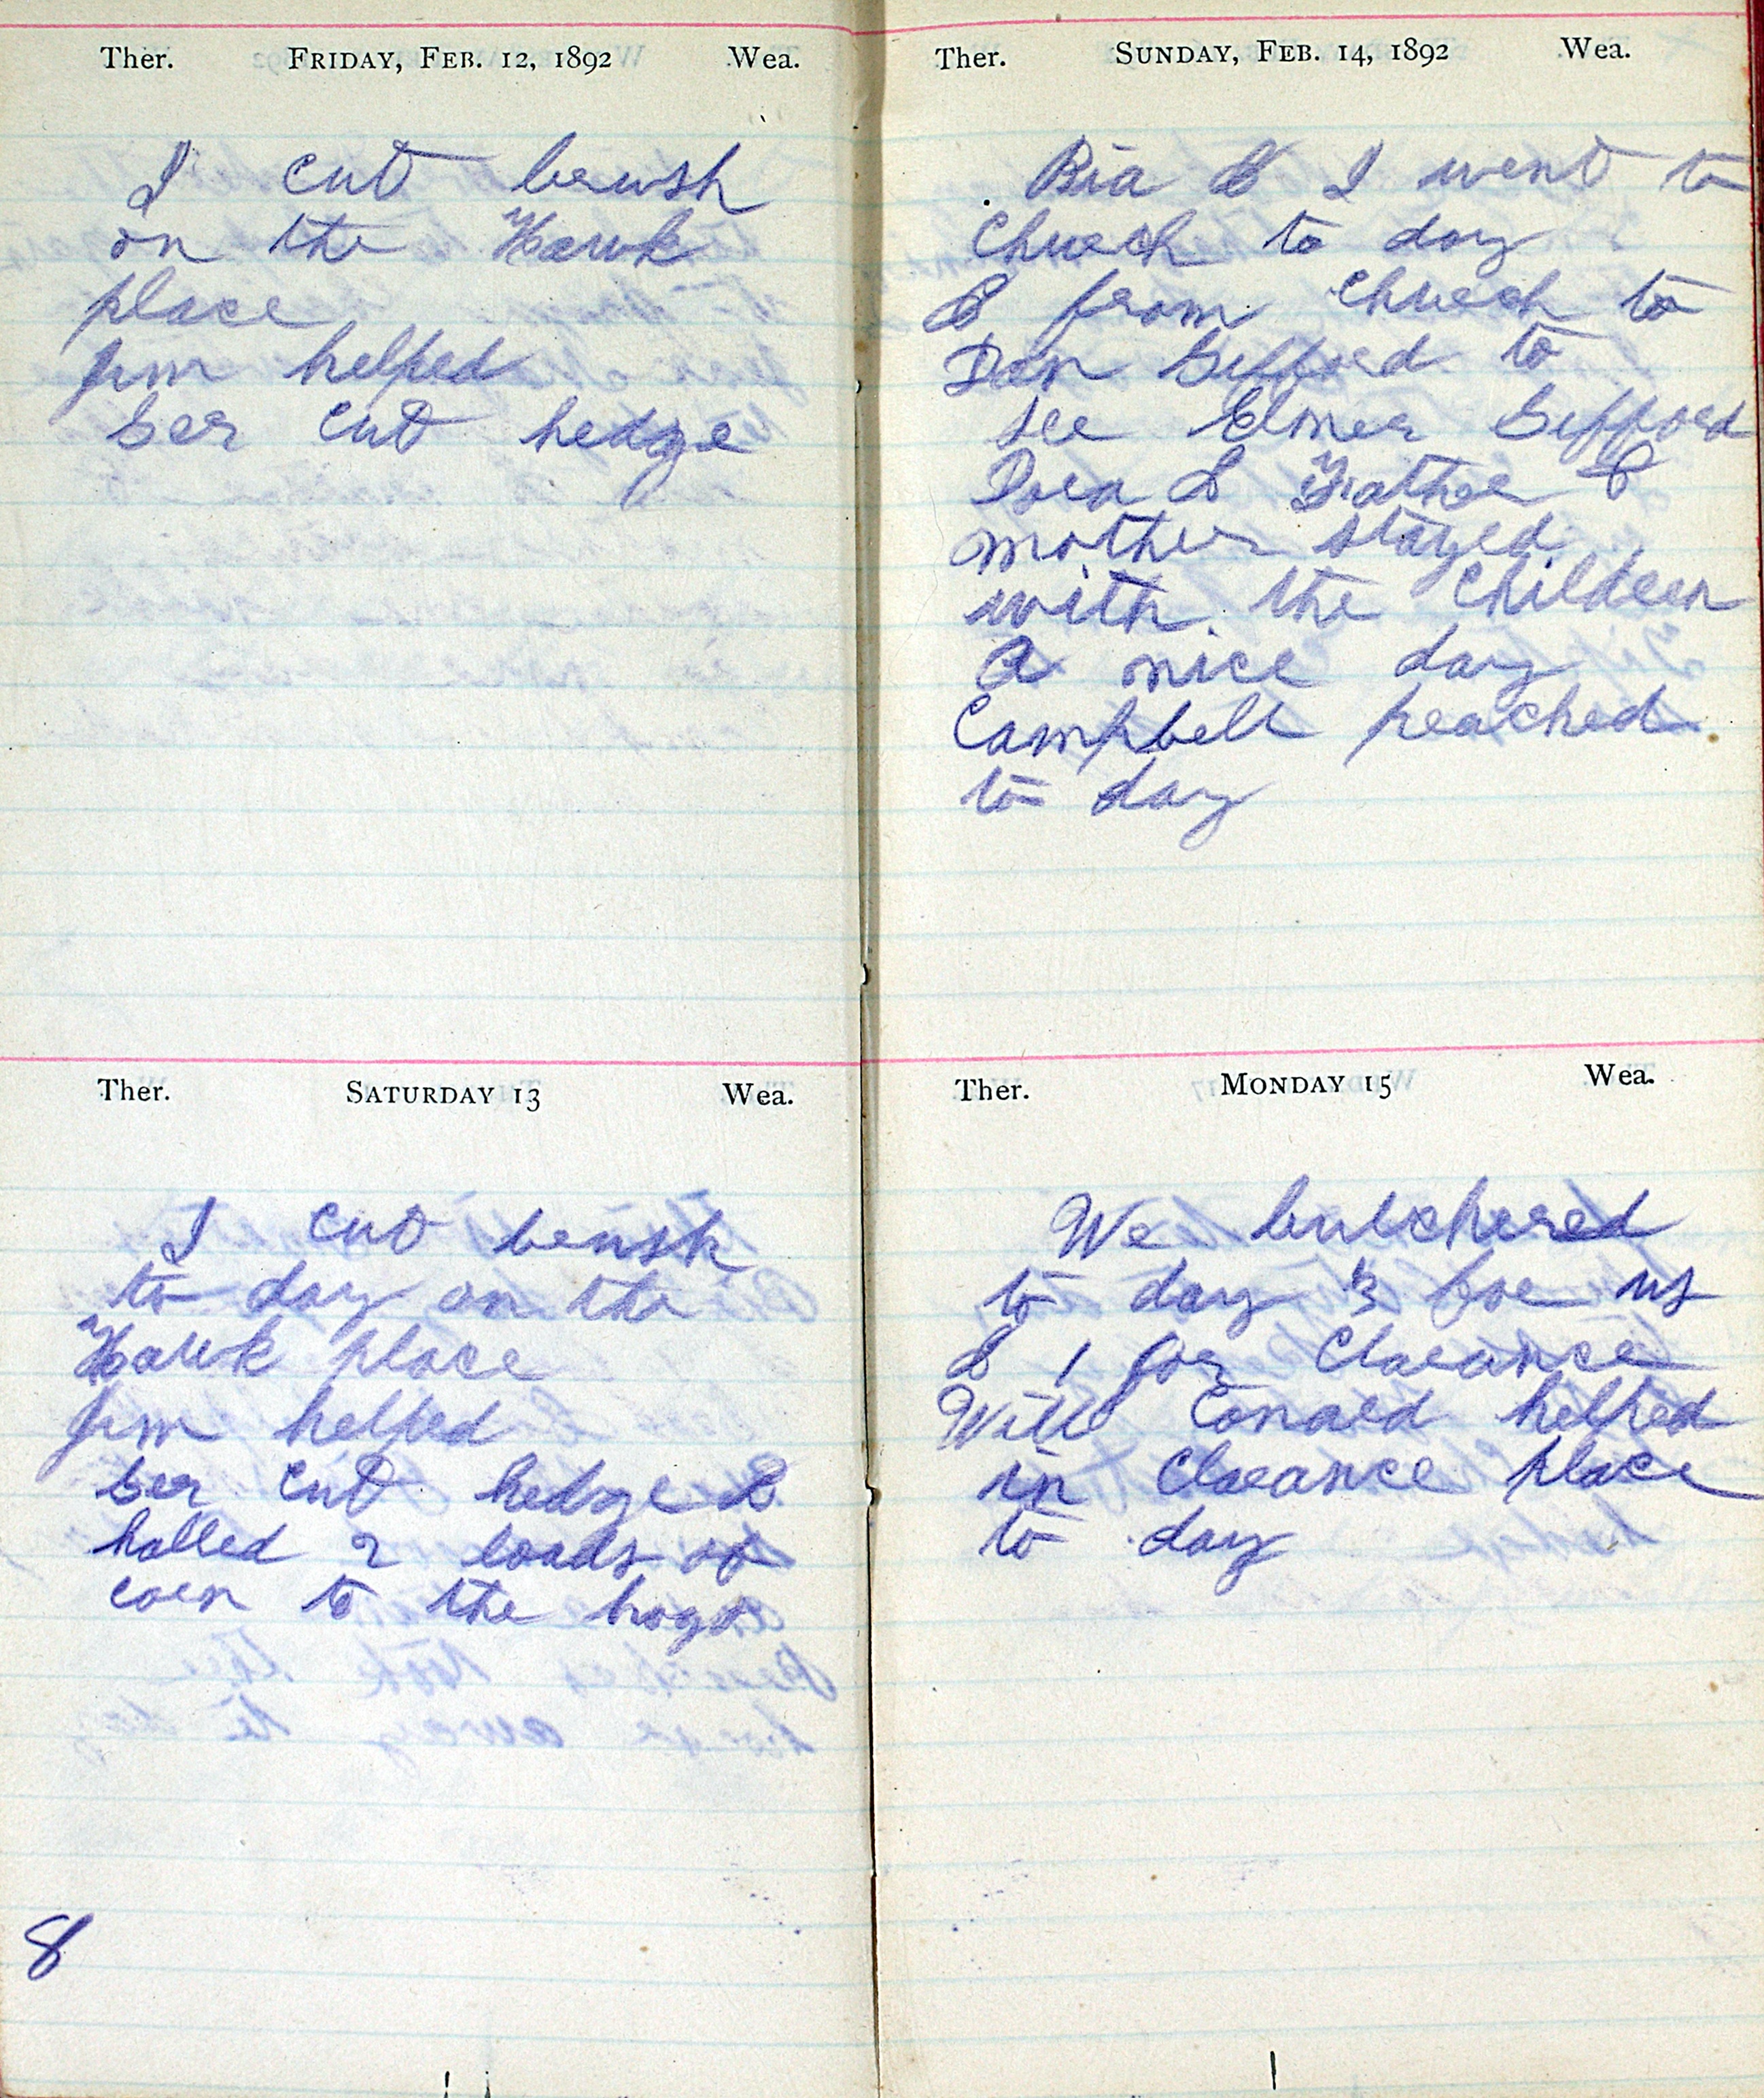 Ther. FRIDAY, FEB. 12, 1892 Wea.
I cut brush
on the Hawk
place
Jim helped
Ger cut hedge
Ther. SATURDAY 13 Wea.
I cut brush
to day on the
Hawk place
Jim helped
Ger cut hedge &
halled 2 loads of
corn to the hogs
8
Ther. SUNDAY, FEB. 14, 1892 Wea.
Ria & I went to
Church to day
& from Church to
Dan Gifford to
see Elmer Gifford
Dora & Father &
mother stayed
with the Children
A nice day
Campbell preached
to day
Ther. MONDAY 15 Wea.
We butchered
to day 3 for us
& 1 for Clarance
Will Conard helped
in Clarance place
to day